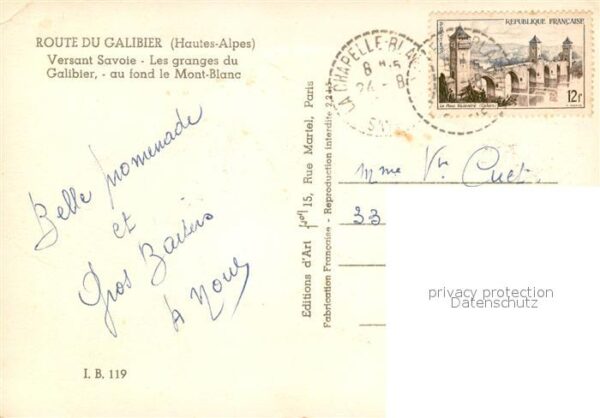 ROUTE DU GALIBIER (Hautes-Alpes)
Versant Savoie - Les granges du
Galibier, - au fond le Mont-Blanc
Belle promenade
et
Gros Baisers
à nous
I. B. 119
Editions d'Art 15, Rue Martel, Paris
Fabrication Française - Reproduction interdite
LA CHAPELLE-BLAN
8 H 5
24 - 8
REPUBLIQUE FRANÇAISE
Le Pont Valentré (Cahors)
12F
Mme Vve Cuet
33
privacy protection
Datenschutz